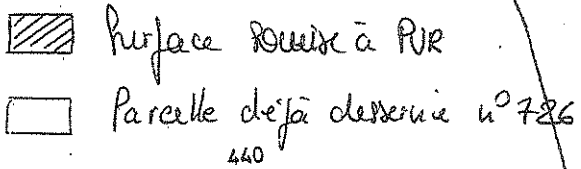 Surface soumise à PVR
Parcelle déjà desservie n° 726
440